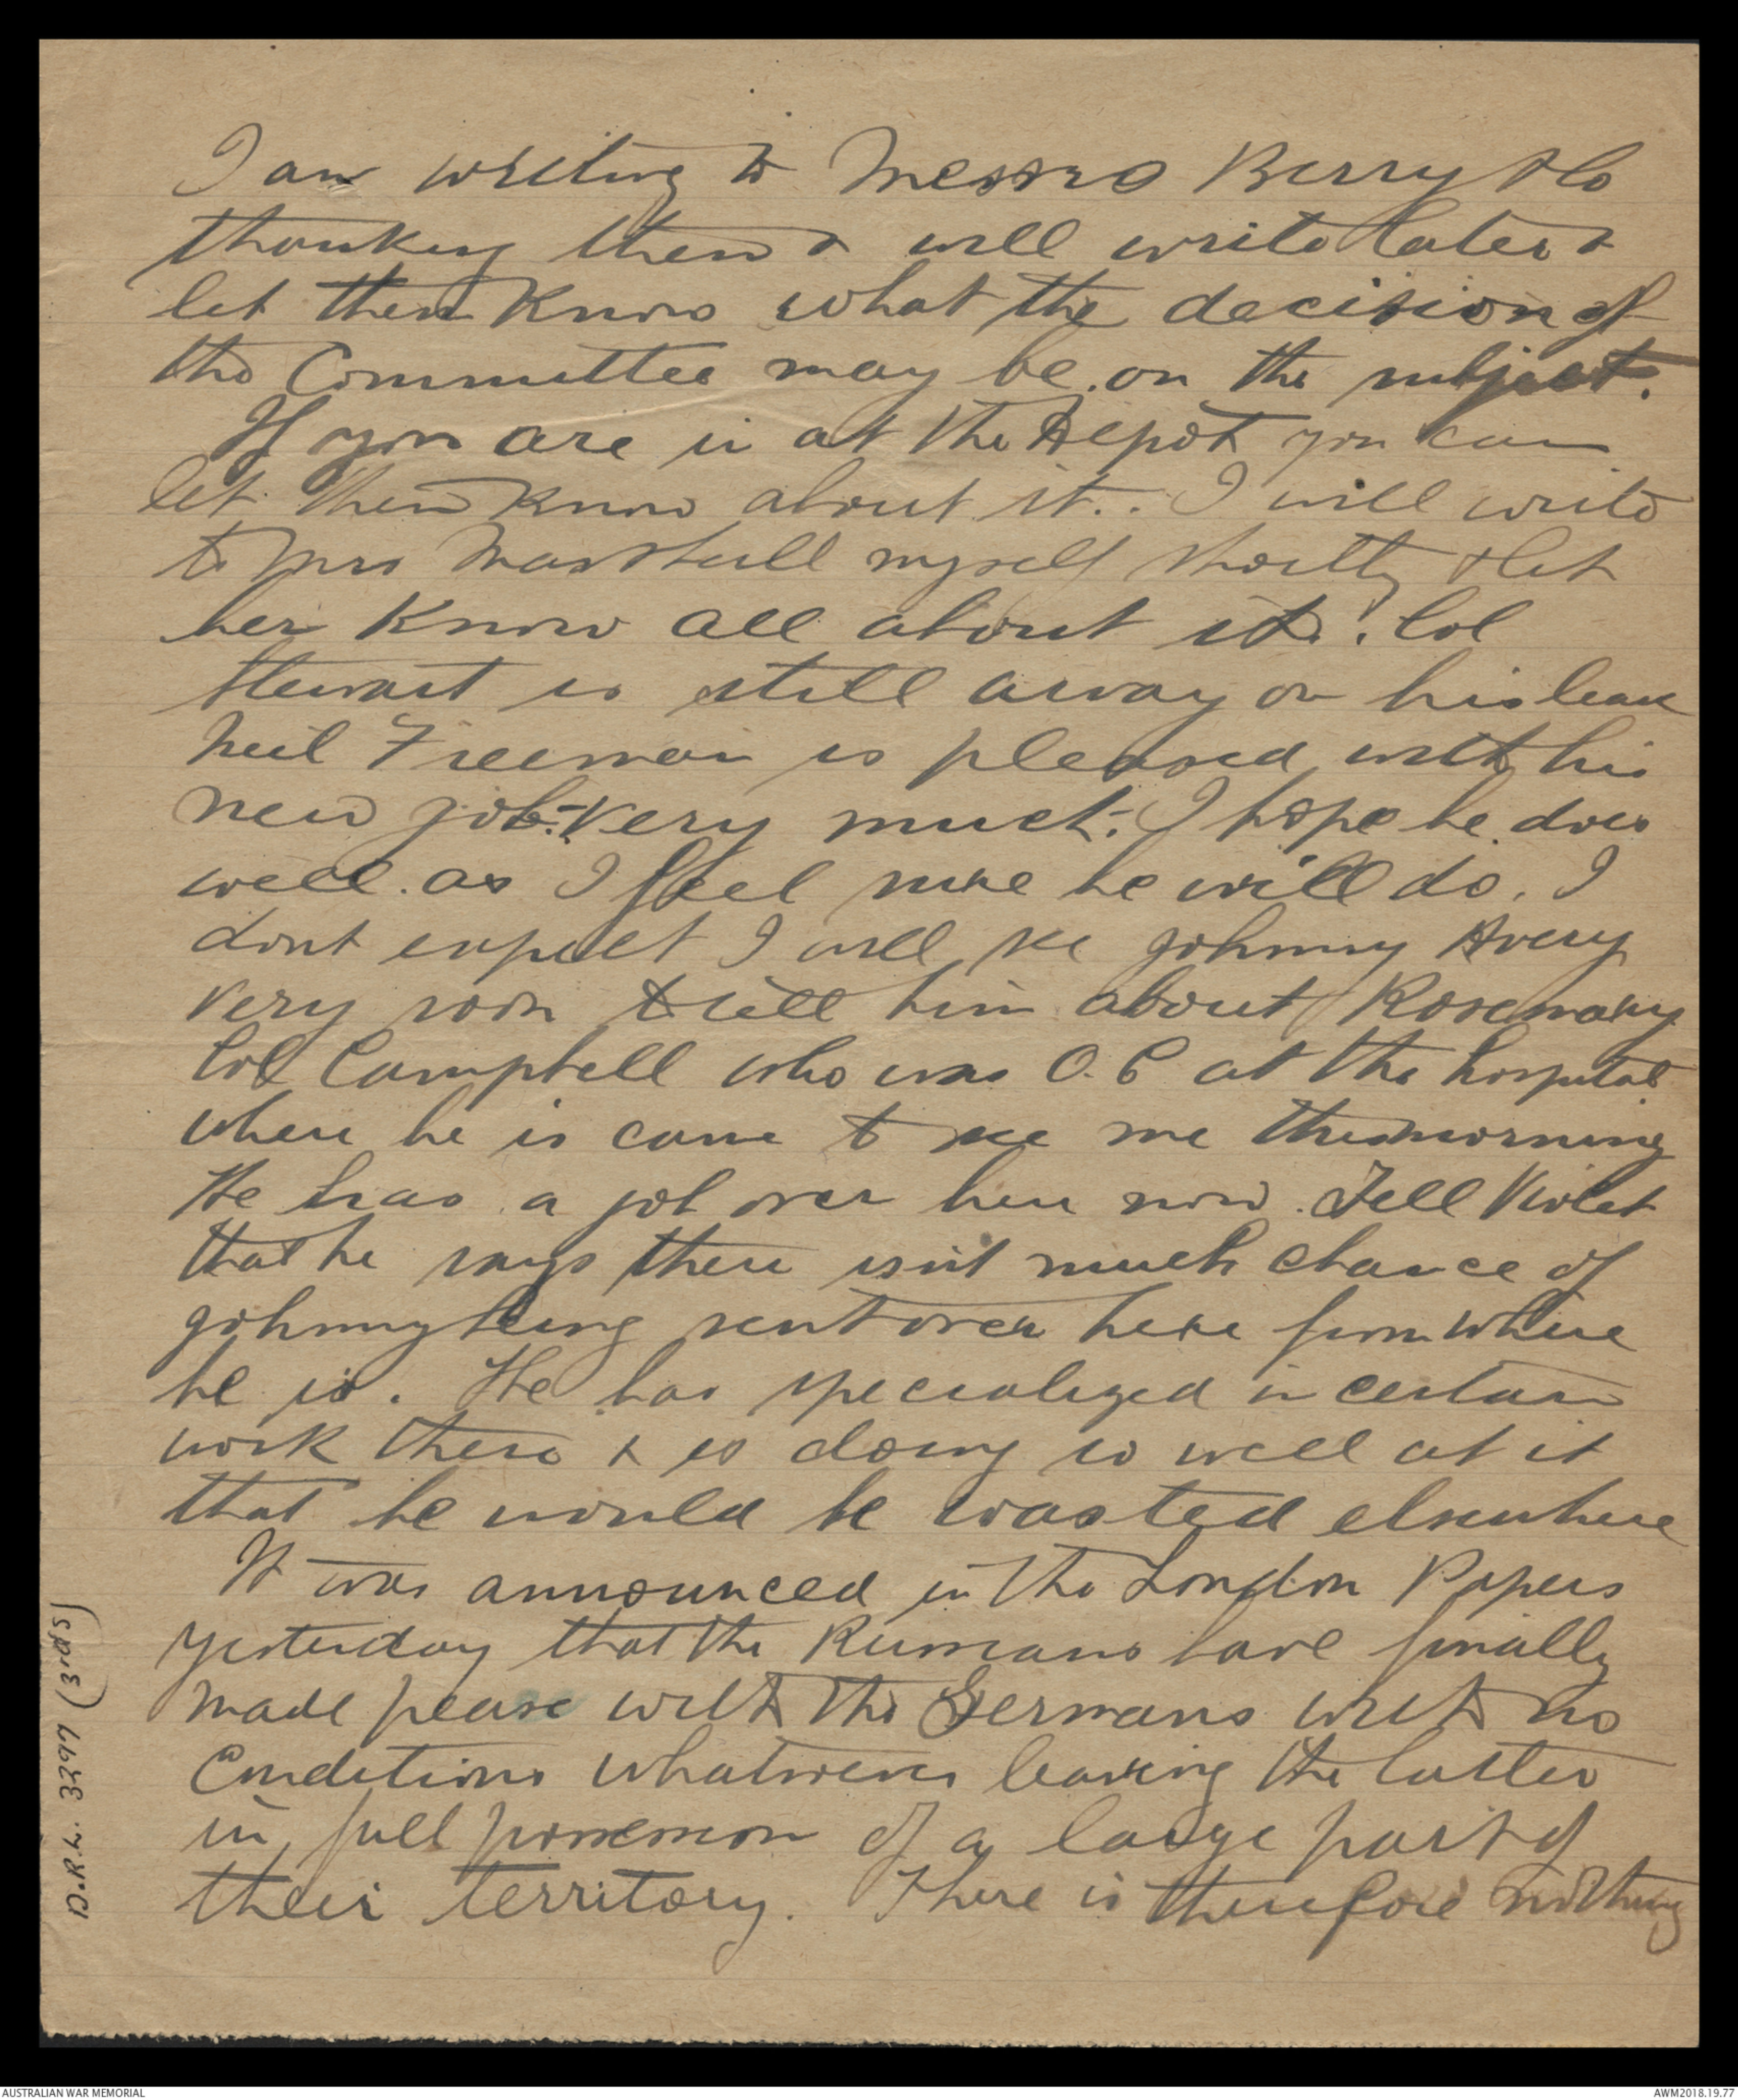 I am writing to Messrs Berry & Co
thanking them & will write later &
let them know what the decision of
the Committee may be on the subject.
If you are in at the Depot you can
let them know about it. I will write
to Mrs Marshall myself shortly & let
her know all about it. Col
Stewart is still away on his leave
Neil Freeman is pleased with his
new job:- very much. I hope he does
well as I feel sure he will do. I
dont expect I will see Johnny Avery
very soon to tell him about Rosemary
Col Campbell who was O.C at the hospital
where he is came to see me this morning
He has a job over here now. Tell Violet
that he says there isnt much chance of
Johnny being sent over here from where
he is. He has specialized in certain
work there & is doing so well at it
that he would be wasted elsewhere
It was announced in the London Papers
yesterday that the Rumans have finally
made pease with the Germans with no
Conditions whatsoever leaving the latter
in full possession of a large part of
their territory. There is therefore nothing
3297 (3rds)
AUSTRALIAN WAR MEMORIAL
AWM2018.19.77